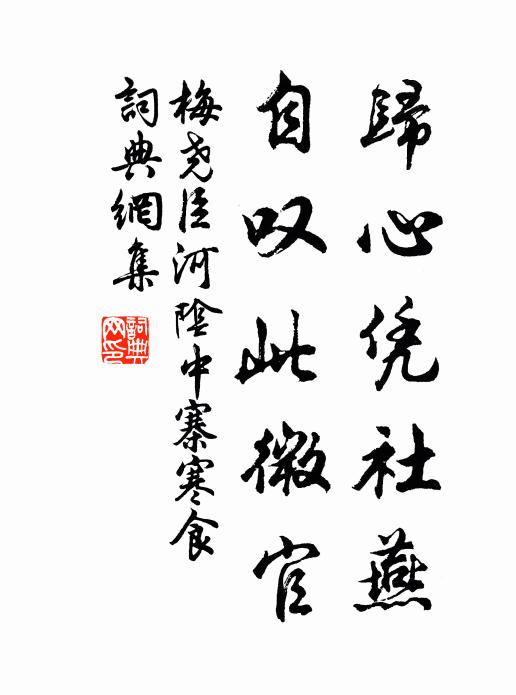 歸心凭社燕
自叹此微官
梅尧臣河陰中寨寒食
詞典網集
詞典網印